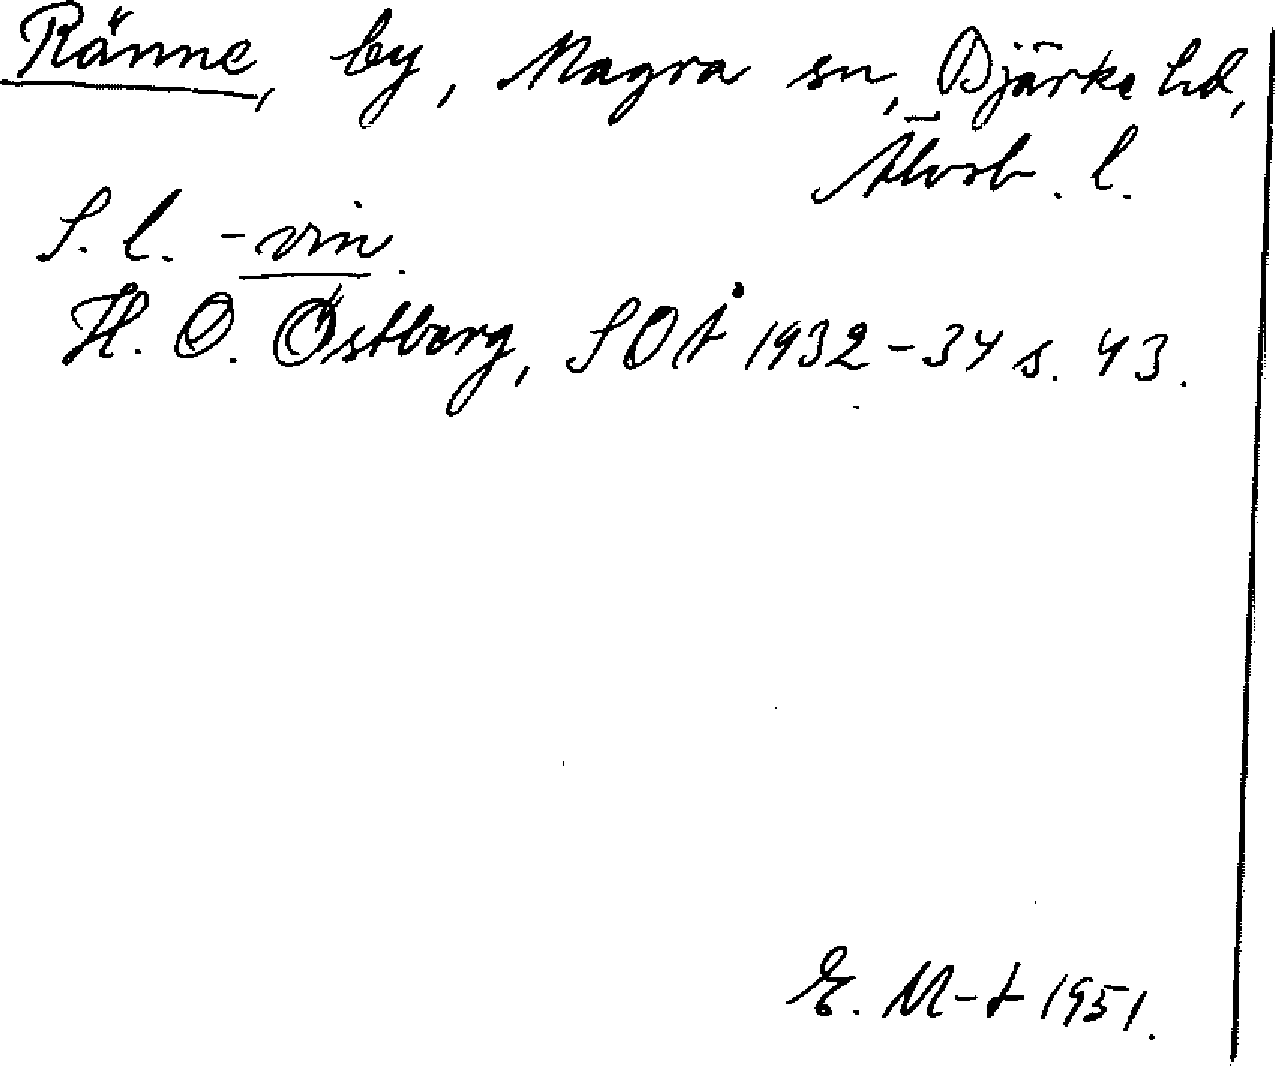 Ränne, by, Magra sn, Bjärke hd,
Älvsb. l.
S. l. -vin.
H. O. Östberg, SOÅ 1932-34 s. 43.
E. M-t 1951.